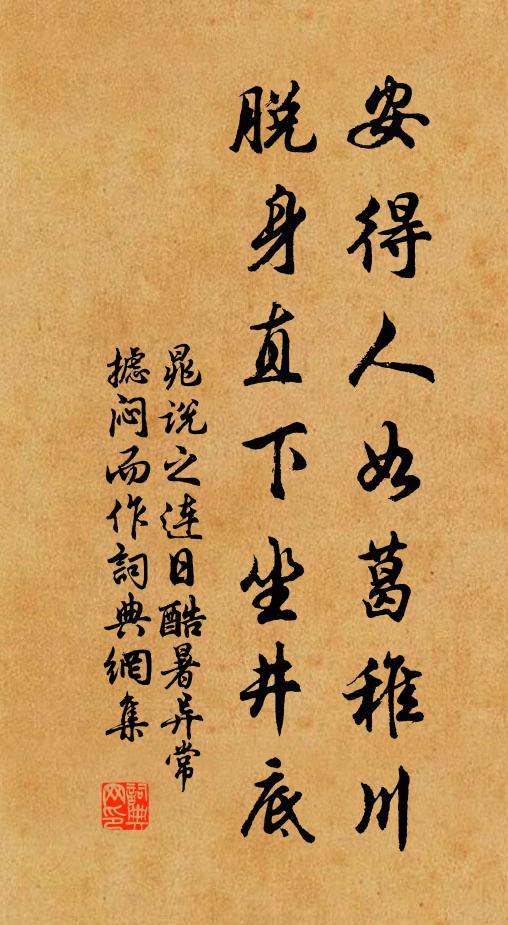 安得人如葛稚川
脱身直下坐井底
晁说之连日酷暑异常
摅闷而作詞典網集
詞典网印